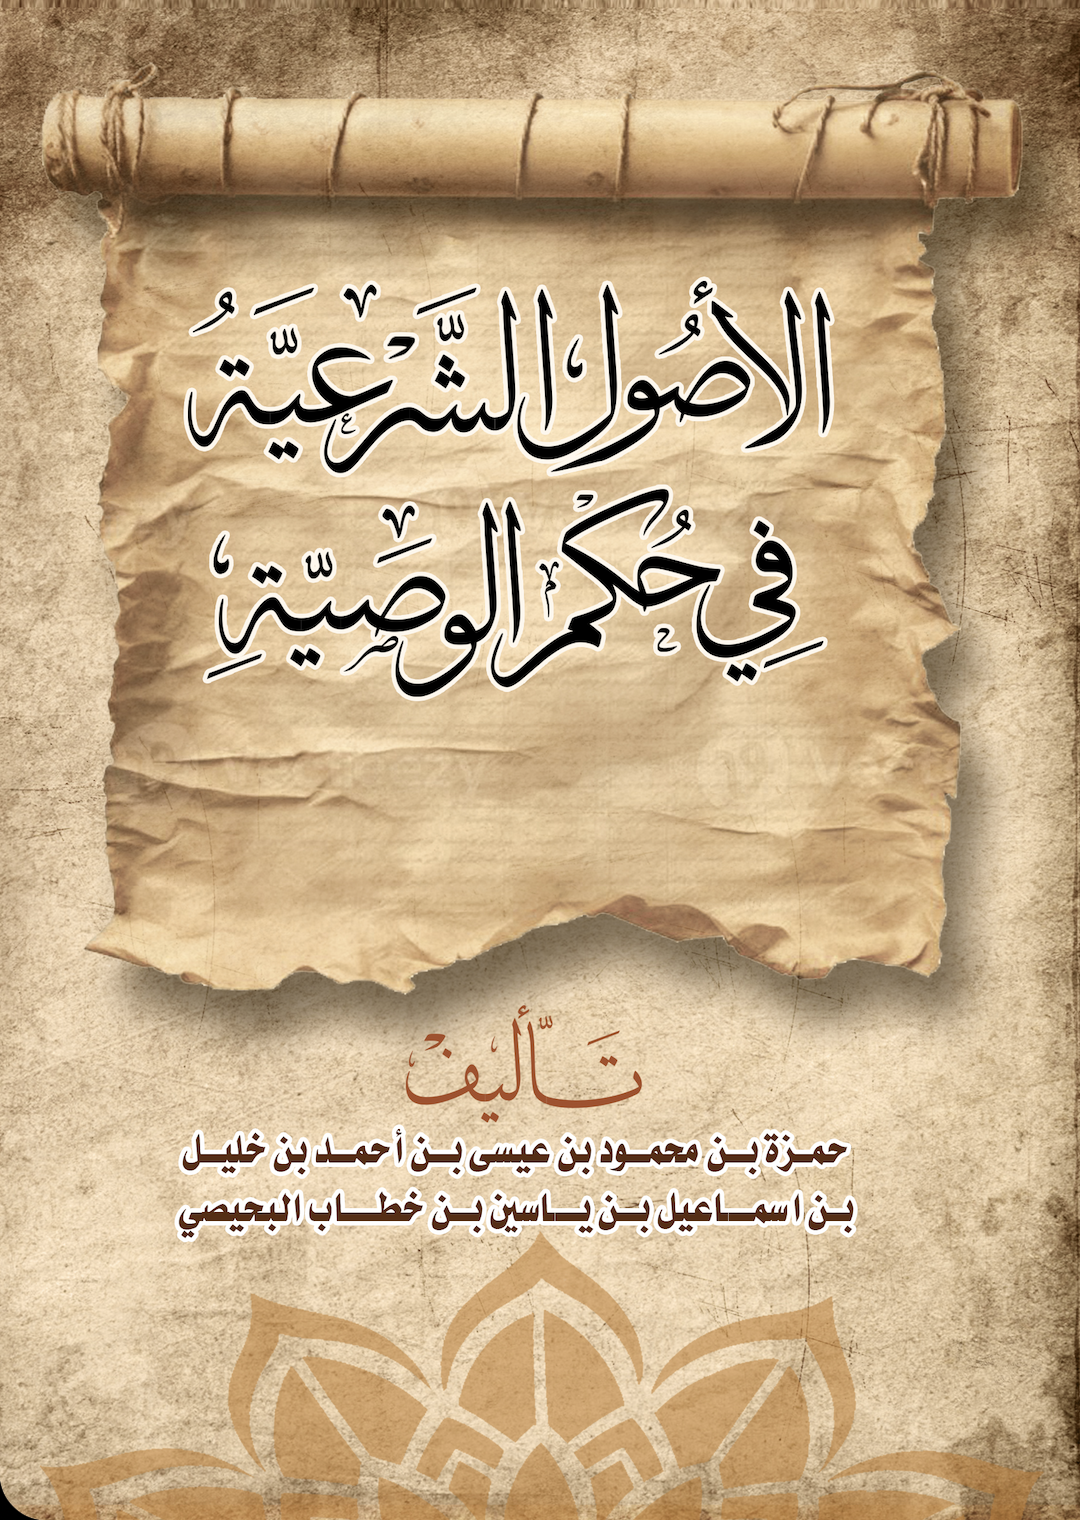 الأُصُولُ الشَّرْعِيَّةُ
فِي حُكْمِ الوَصِيَّةِ
تَأليفْ
حمزة بن محمود بن عيسى بن أحمد بن خليل
بن اسماعيل بن ياسين بن خطاب البحيصي